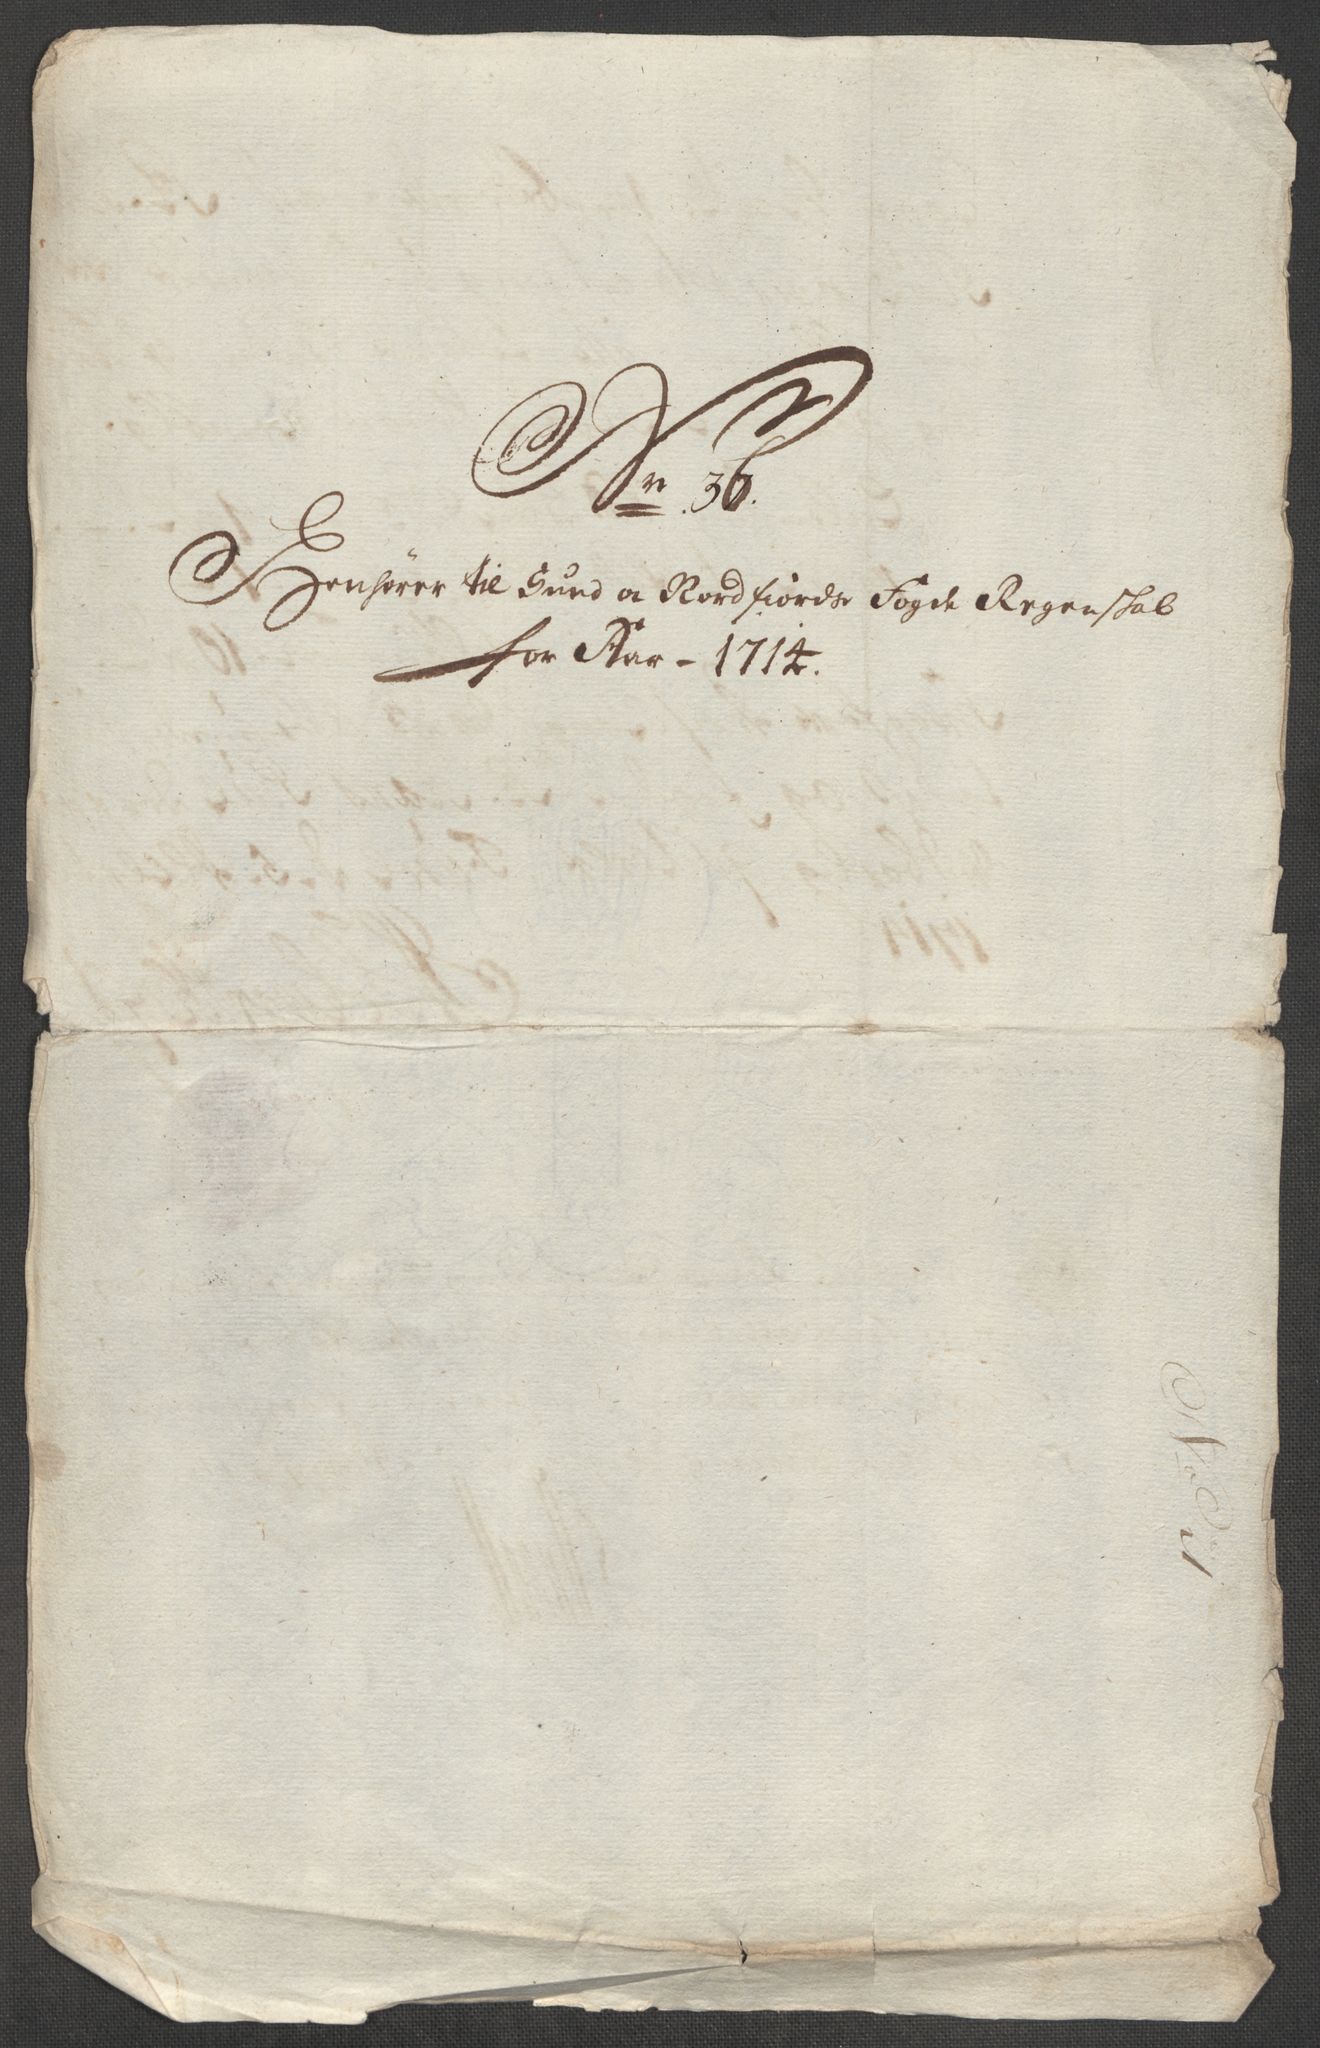 Nr. 36.
Henhører til Sund o Nordfiords Fogde Regenskab
for Aar - 1714.
No